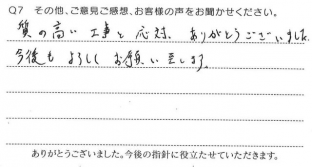 Q7 その他、ご意見ご感想、お客様の声をお聞かせください。
質の高い工事と応対、ありがとうございました
今後も よろしく お願い致します。
ありがとうございました。今後の指針に役立たせていただきます。